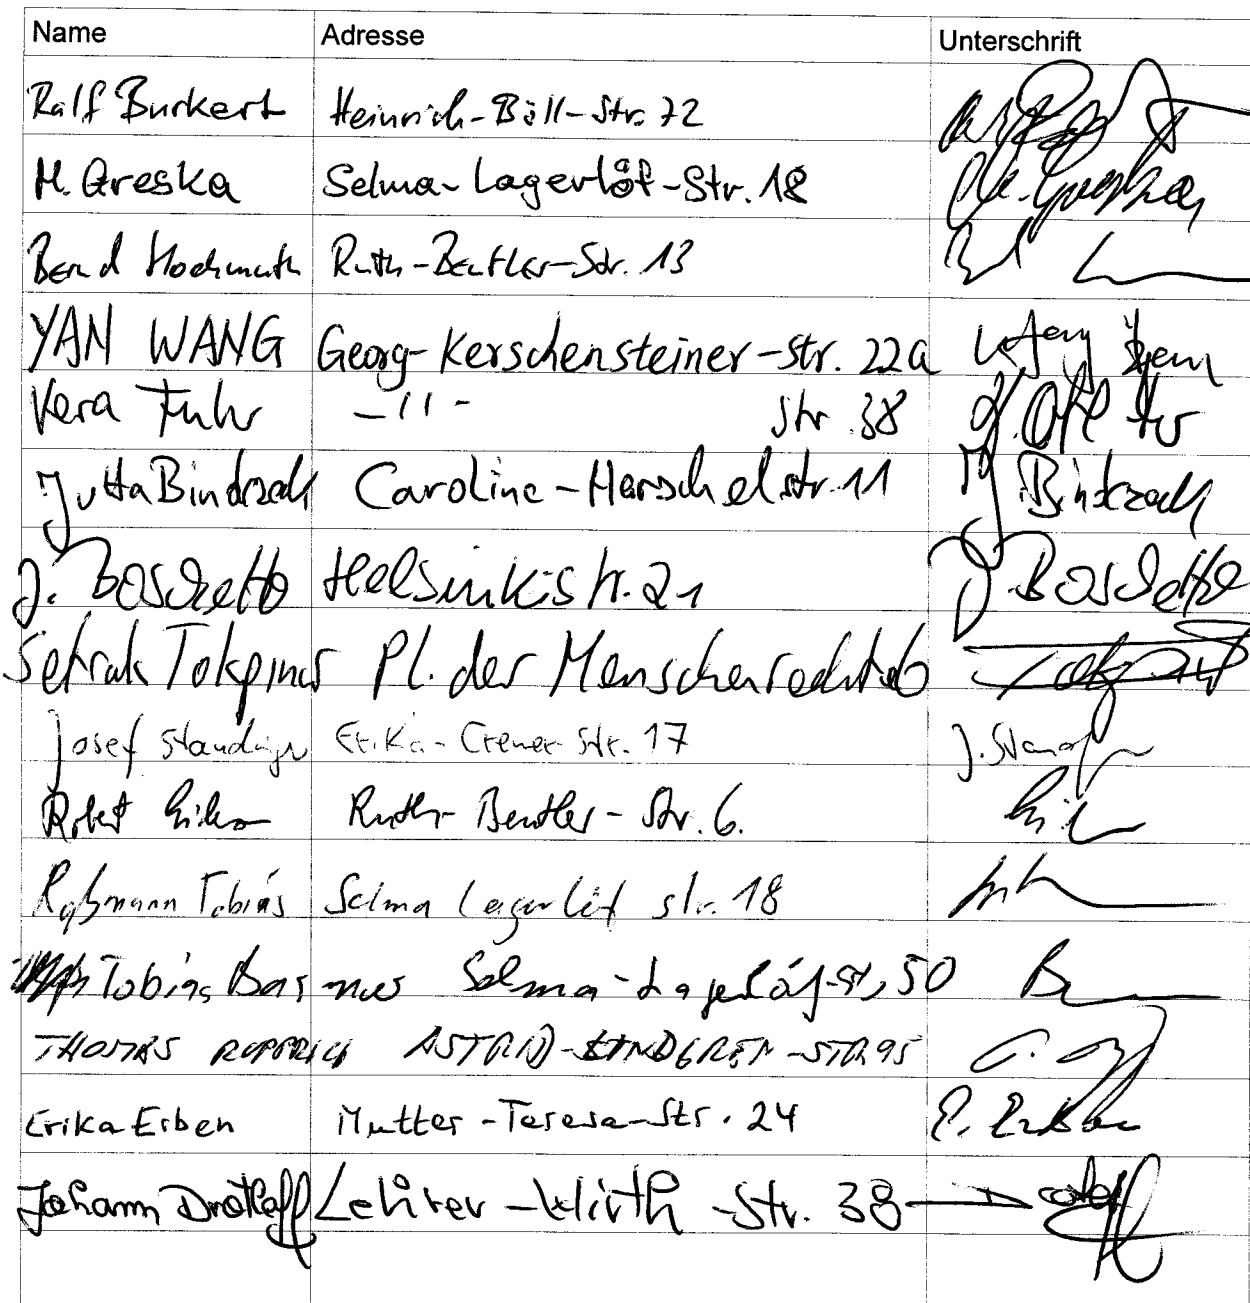 Name Adresse Unterschrift
Ralf Burkert Heinrich-Böll-Str. 72
M. Greska Selma-Lagerlöf-Str. 18
Bernd Hochmuth Ruth-Beutler-Str. 13
YAN WANG Georg-Kerschensteiner-str. 22a
Vera Fuhr -11- Str. 38
Jutta Bindzach Caroline-Herschelstr. 11 J. Bindzach
J. Boschetto Helsinkistr. 21 J. Boschetto
Setrak Tokpinar Pl. der Menschenrechte 6
Josef Staudinger Erika-Cremer Str. 17
Robert Ruth-Beutler-Str. 6.
Roßmann Tobias Selma Lagerlöf str. 18
Tobias Selma-Lagerlöf-Str. 50
THOMAS ASTRID-LINDGREN-STR. 95
Erika Erben Mutter-Teresa-Str. 24
Johann Lehrer-Wirth-Str. 38